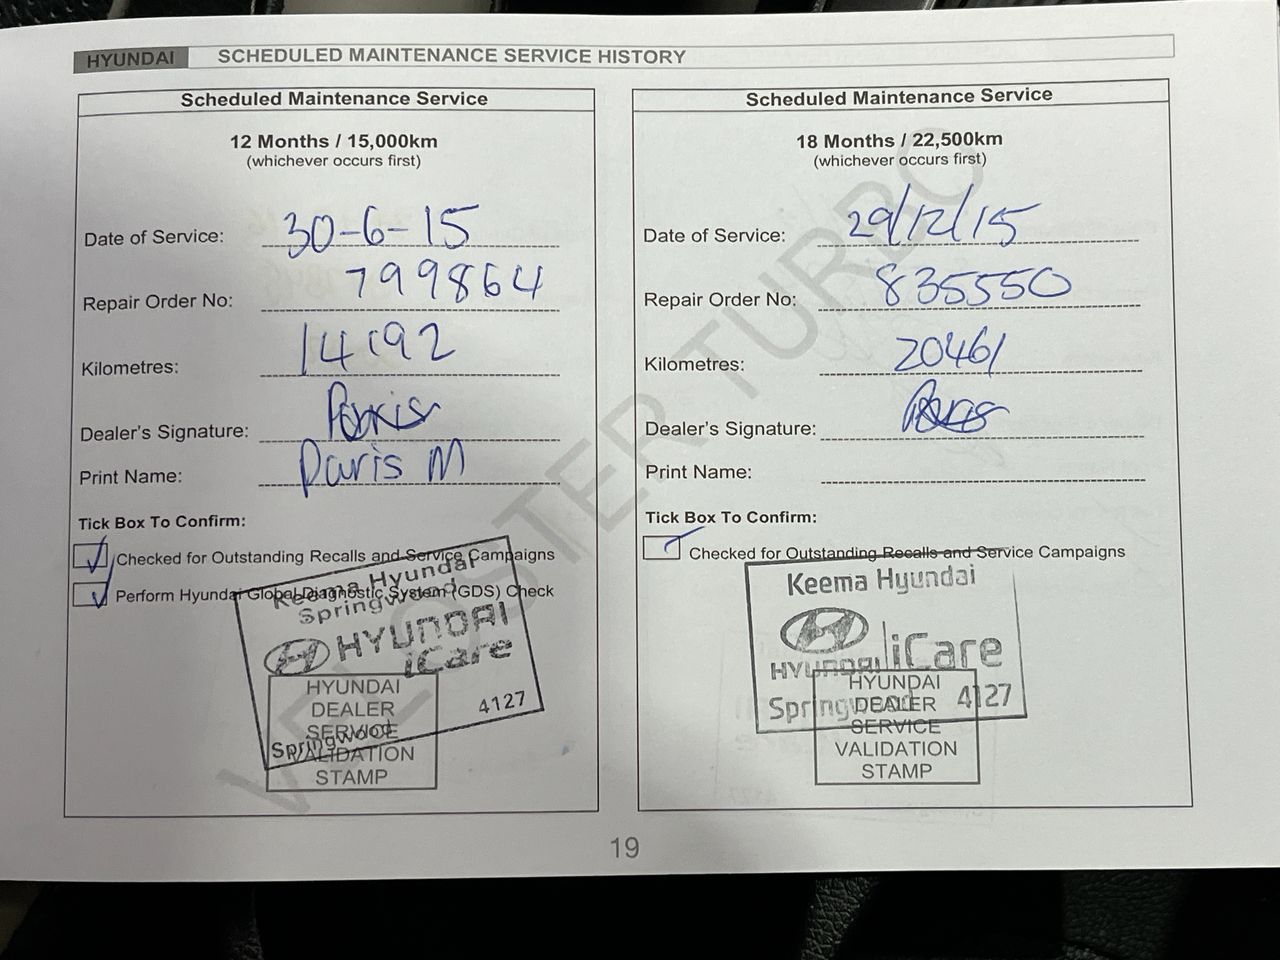 HYUNDAI SCHEDULED MAINTENANCE SERVICE HISTORY
Scheduled Maintenance Service
12 Months / 15,000km
(whichever occurs first)
Date of Service: 30-6-15
Repair Order No: 799864
Kilometres: 14192
Dealer's Signature: Paris
Print Name: Paris M
Tick Box To Confirm:
Checked for Outstanding Recalls and Service Campaigns
Perform Hyundai Global Diagnostic System (GDS) Check
Keema Hyundai
Springwood
HYUNDAI
iCare
4127
Springwood
HYUNDAI
DEALER
SERVICE
VALIDATION
STAMP
Scheduled Maintenance Service
18 Months / 22,500km
(whichever occurs first)
Date of Service: 29/12/15
Repair Order No: 835550
Kilometres: 20461
Dealer's Signature:
Print Name:
Tick Box To Confirm:
Checked for Outstanding Recalls and Service Campaigns
Keema Hyundai
HYUNDAI iCare
Springwood 4127
HYUNDAI
DEALER
SERVICE
VALIDATION
STAMP
VELOSTER TURBO
19